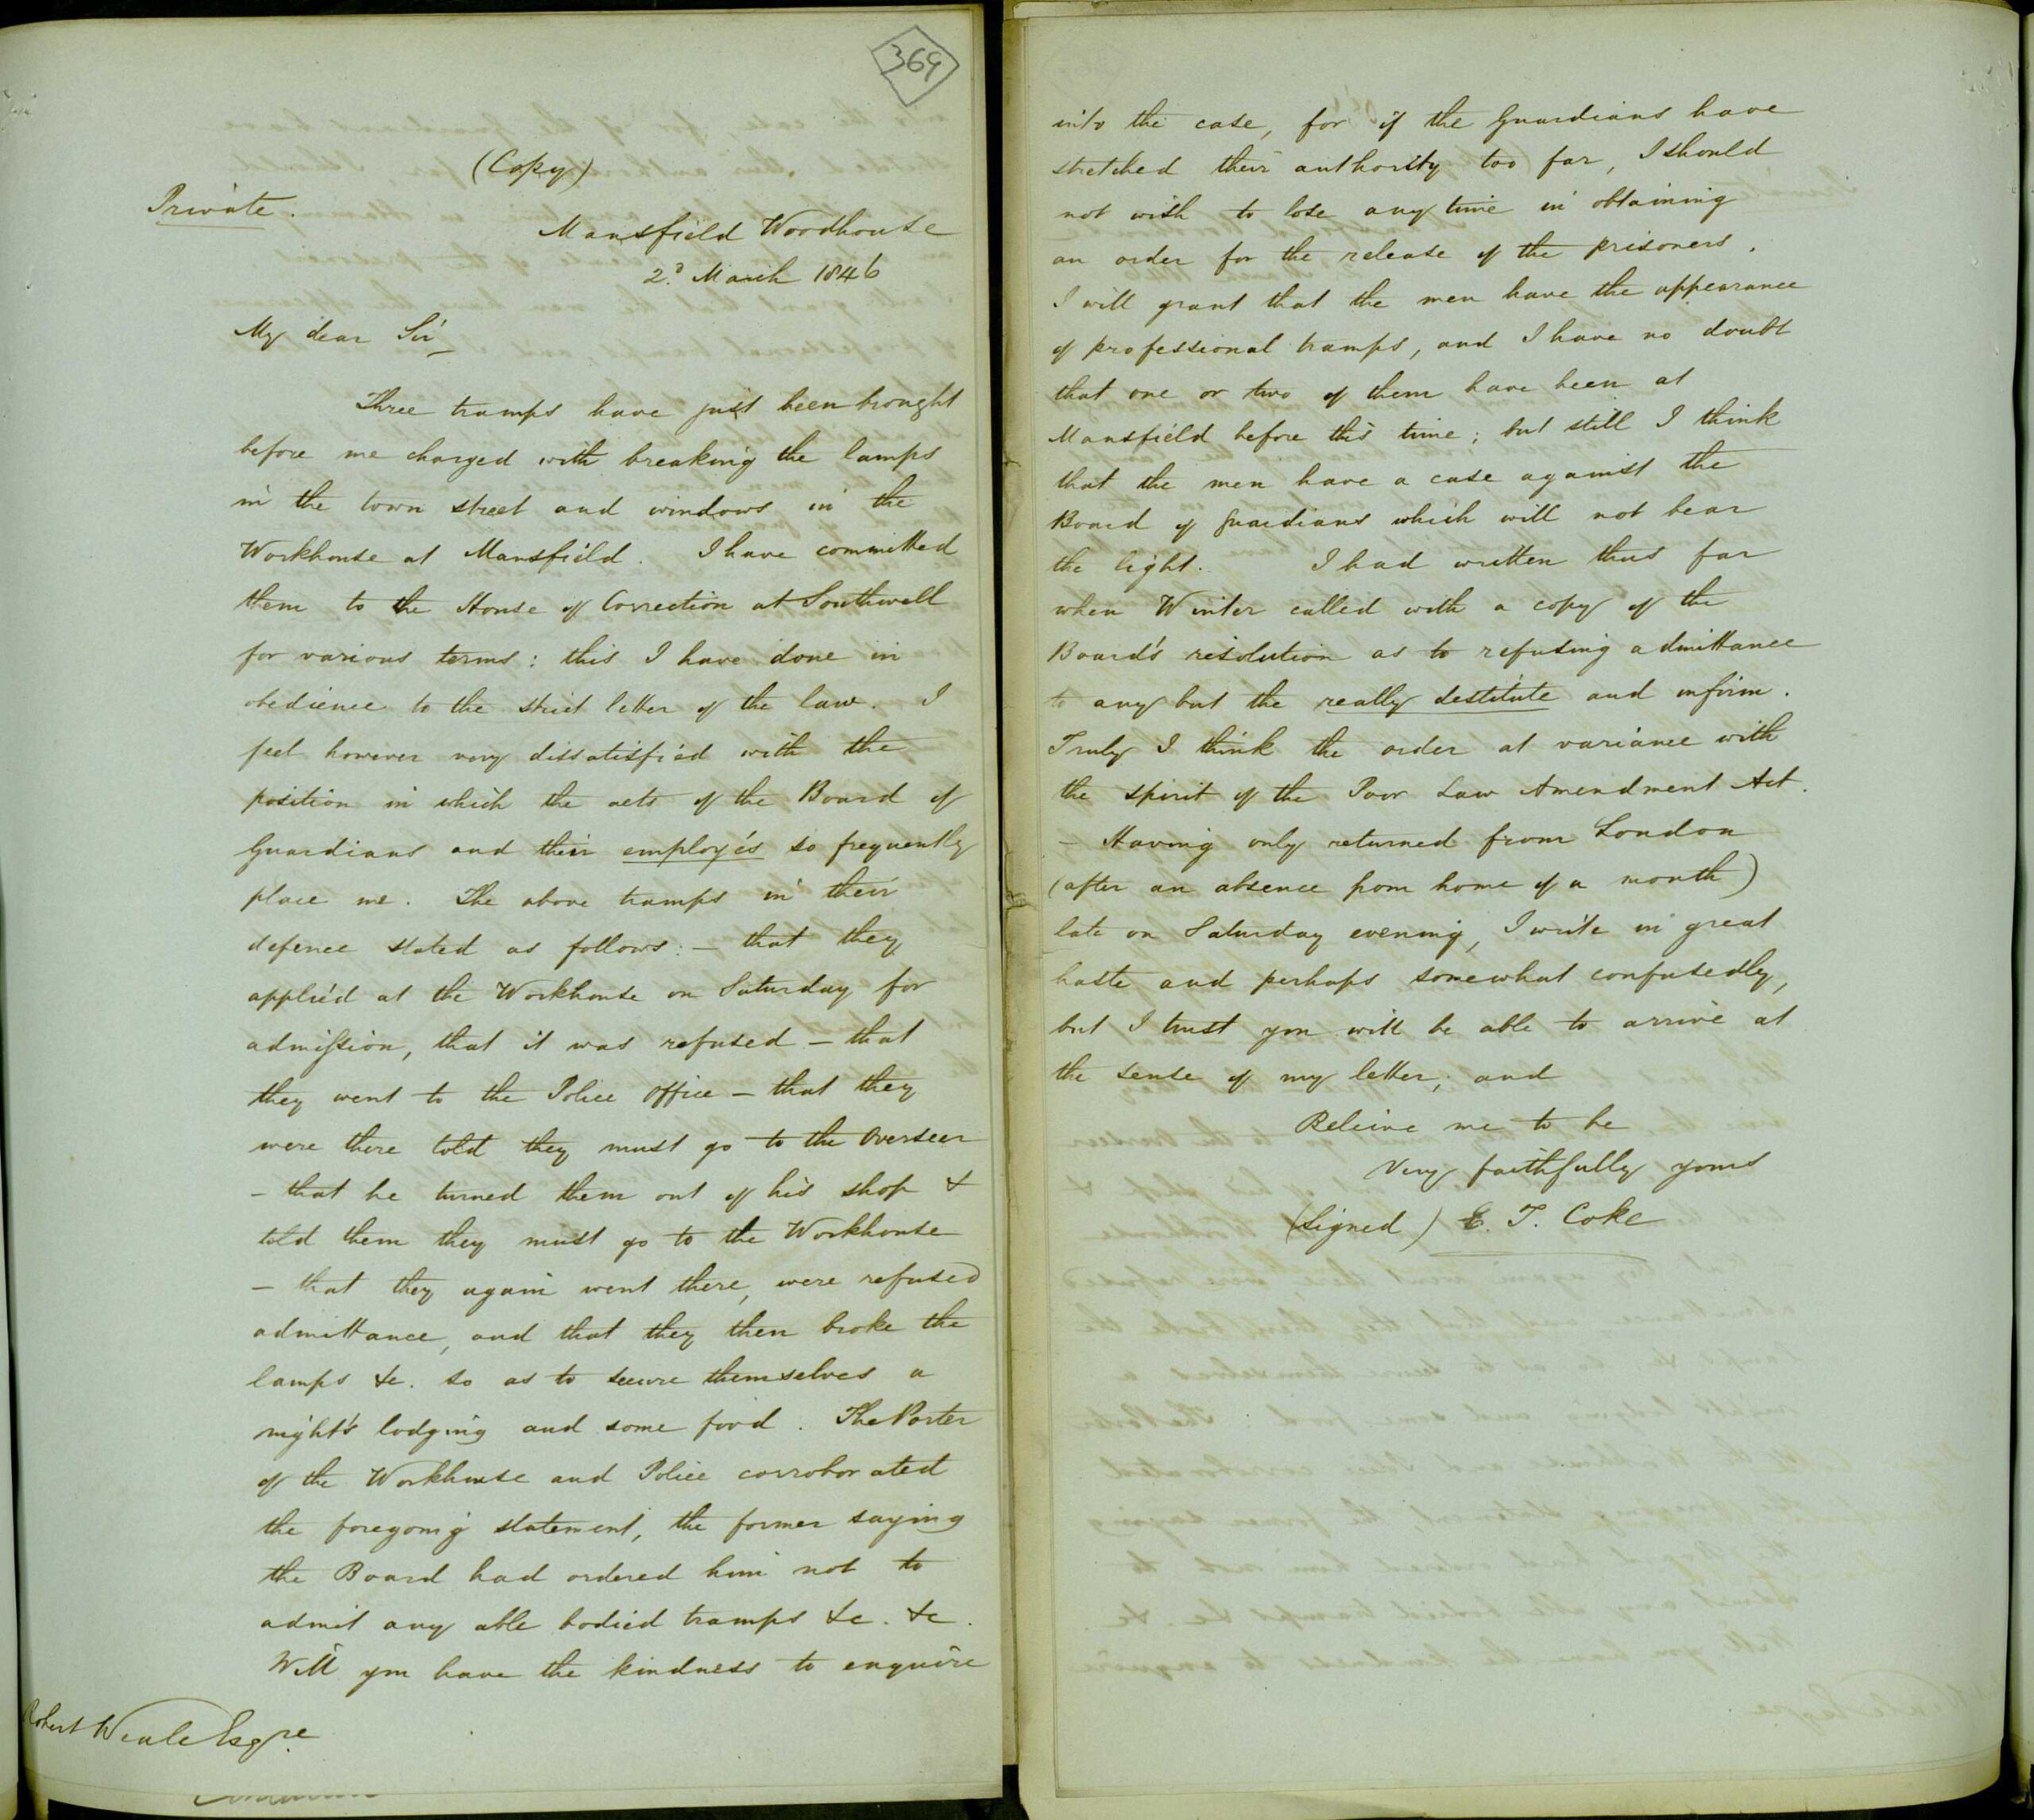 369
(Copy)
Private.
Mansfield Woodhouse
2d. March 1846
My dear Sir
Three tramps have just been brought
before me charged with breaking the lamps
in the town street and windows in the
Workhouse at Mansfield. I have committed
them to the House of Correction at Southwell
for various terms: this I have done in
obedience to the strict letter of the law. I
feel however very dissatisfied with the
position in which the acts of the Board of
Guardians and their employés so frequently
place me. The above tramps in their
defence stated as follows:- that they
applied at the Workhouse on Saturday for
admission, that it was refused - that
they went to the Police Office - that they
were there told they must go to the Overseer
- that he turned them out of his shop &
told them they must go to the Workhouse
- that they again went there, were refused
admittance, and that they then broke the
lamps &c. so as to secure themselves a
night's lodging and some food. The Porter
of the Workhouse and Police corroborated
the foregoing statement, the former saying
the Board had ordered him not to
admit any able bodied tramps &c. &c.
Will you have the kindness to enquire
Robert Weale Esqre.
into the case, for if the Guardians have
stretched their authority too far, I should
not wish to lose any time in obtaining
an order for the release of the prisoners.
I will grant that the men have the appearance
of professional tramps, and I have no doubt
that one or two of them have been at
Mansfield before this time; but still I think
that the men have a case against the
Board of Guardians which will not bear
the light. I had written thus far
when Winter called with a copy of the
Board's resolution as to refusing admittance
to any but the really destitute and infirm.
Truly I think the order at variance with
the spirit of the Poor Law Amendment Act.
- Having only returned from London
(after an absence from home of a month)
late on Saturday evening, I write in great
haste and perhaps somewhat confusedly,
but I trust you will be able to arrive at
the sense of my letter, and
Believe me to be
Very faithfully yours
(Signed) E. T. Coke